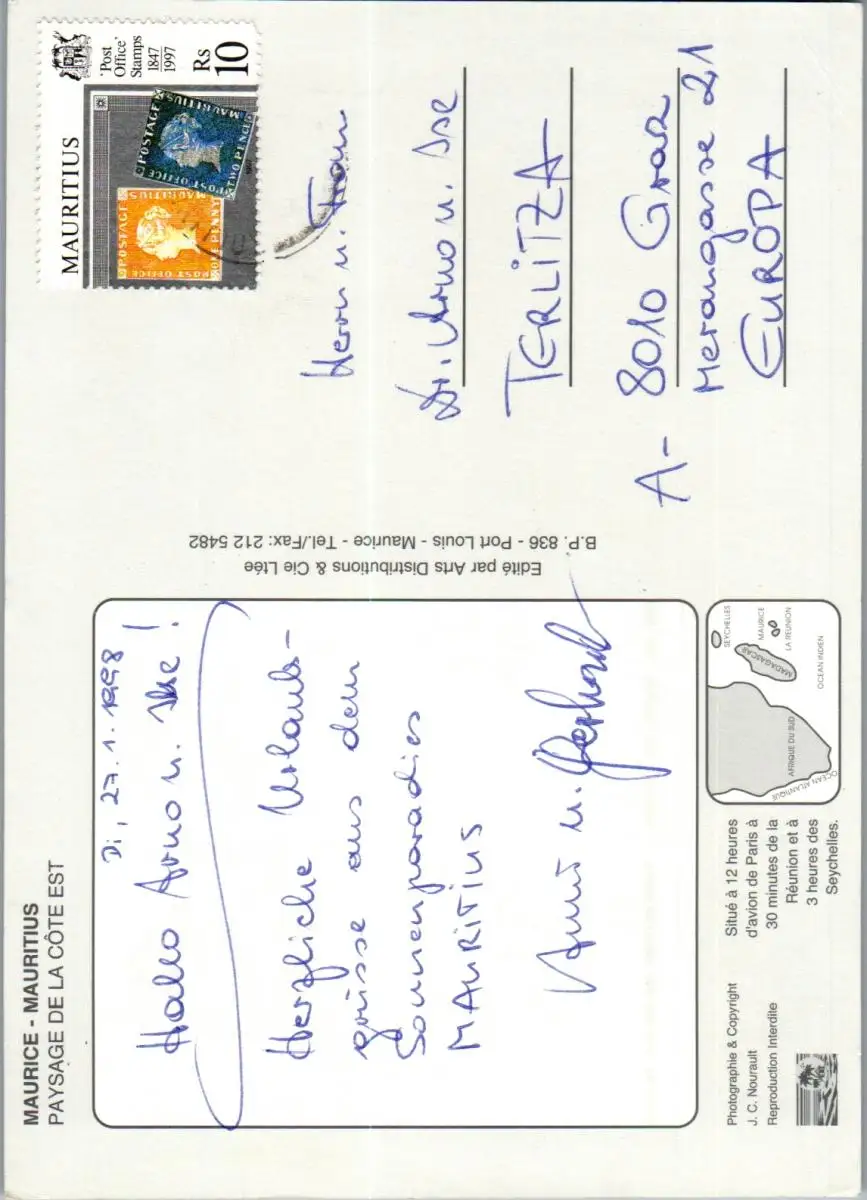 MAURICE - MAURITIUS
PAYSAGE DE LA CÔTE EST
Di, 27.1.1998
Hallo Arno u. Ilse!
Herzliche Urlaubs-
grüsse aus dem
Sonnenparadies
MAURITIUS
u. Gerhard
Edité par Arts Distributions & Cie Ltée
B.P. 836 - Port Louis - Maurice - Tel./Fax: 212 5482
MAURITIUS
'Post
Office'
Stamps
1847
1997
Rs
10
POSTAGE
MAURITIUS
TWO PENCE
POST OFFICE
POSTAGE
MAURITIUS
ONE PENNY
POST OFFICE
Herrn u. Frau
Dr. Arno u. Ilse
TERLITZA
A- 8010 Graz
Merangasse 21
EUROPA
Photographie & Copyright
J. C. Nourault
Reproduction Interdite
Situé à 12 heures
d'avion de Paris à
30 minutes de la
Réunion et à
3 heures des
Seychelles.
SEYCHELLES
MAURICE
LA RÉUNION
MADAGASCAR
OCEAN INDIEN
AFRIQUE DU SUD
OCEAN ATLANTIQUE